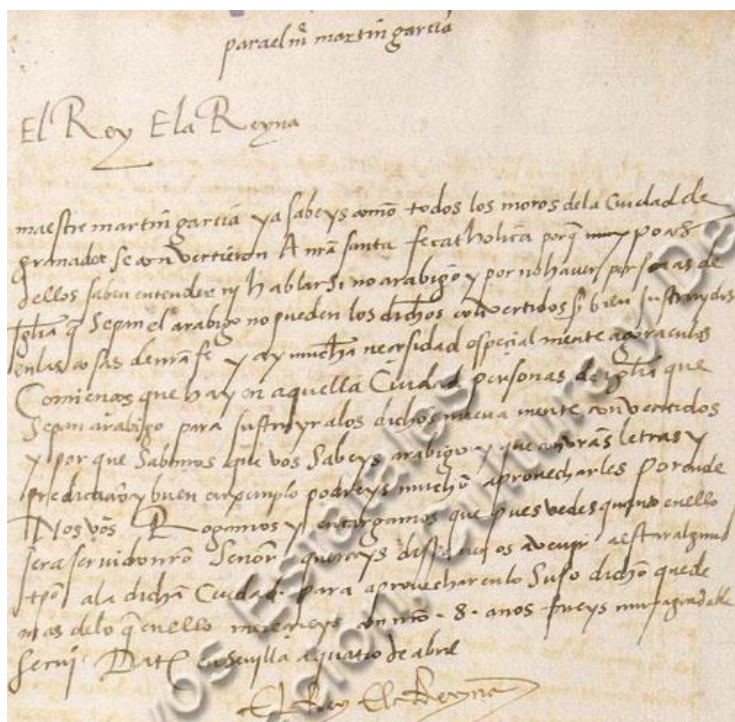 para el m̃ martin garcia
El Rey E la Reyna
maestre martin garcia ya sabeys como todos los moros dela Ciudad de
granada se convertieron A nr̃a santa fe catholica porq̃ muy pocos
dellos saben entender ny hablar si no arabigo y por no haver personas de
Iglia q̃ Sepan el arabigo no pueden los dichos convertidos ser bien Instruydos
enlas cosas de nr̃a fe y ay mucha necesidad especial mente agora alos
Comienços que hay en aquella Ciudad personas de iglia que
Sepan arabigo para Instruyr alos dichos nueva mente convertidos
y por que Sabemos que vos Sabeys arabigo y que con vr̃as letras y
predicacion y buen enxemplo podreys mucho aprovecharles Por ende
Nos vos Rogamos y encargamos que pues vedes quanto en ello
sera servido nr̃o Senor querays disponeros a venir a estar algund
tpõ ala dicha Ciudad para aprovechar en lo Suso dicho que de
mas delo q̃ en ello mereceys con nr̃o S. a nos hareys muy agradable
servi Dat en Sevilla a quatro de abril
El Rey E la Reyna